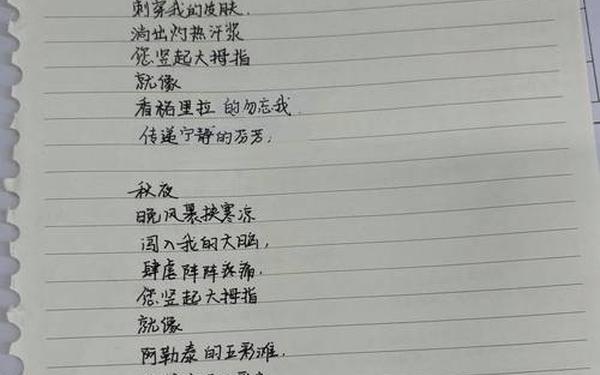 刺穿我的皮肤.
淌出灼热汗浆
您竖起大拇指
就像
香格里拉 的勿忘我.
传递宁静的芬芳,
秋夜
晚风裹挟寒凉
闯入我的大脑,
肆虐阵阵疼痛,
您竖起大拇指
就像
阿勒泰的五彩滩,